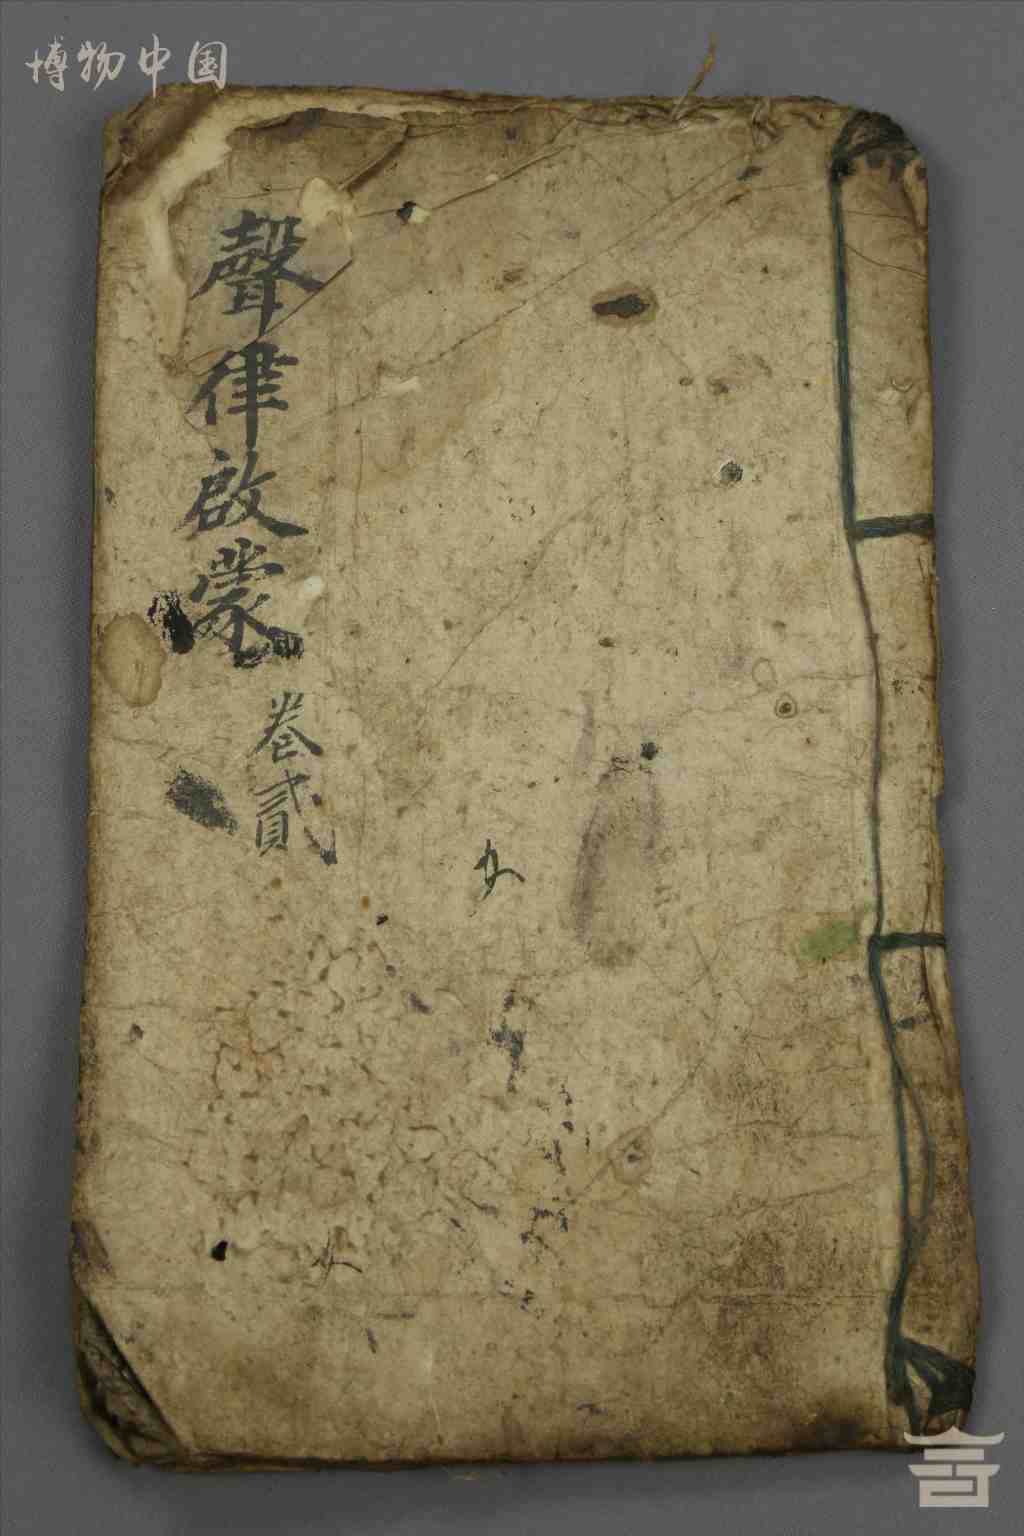 博物中国
聲律啟蒙
卷貳